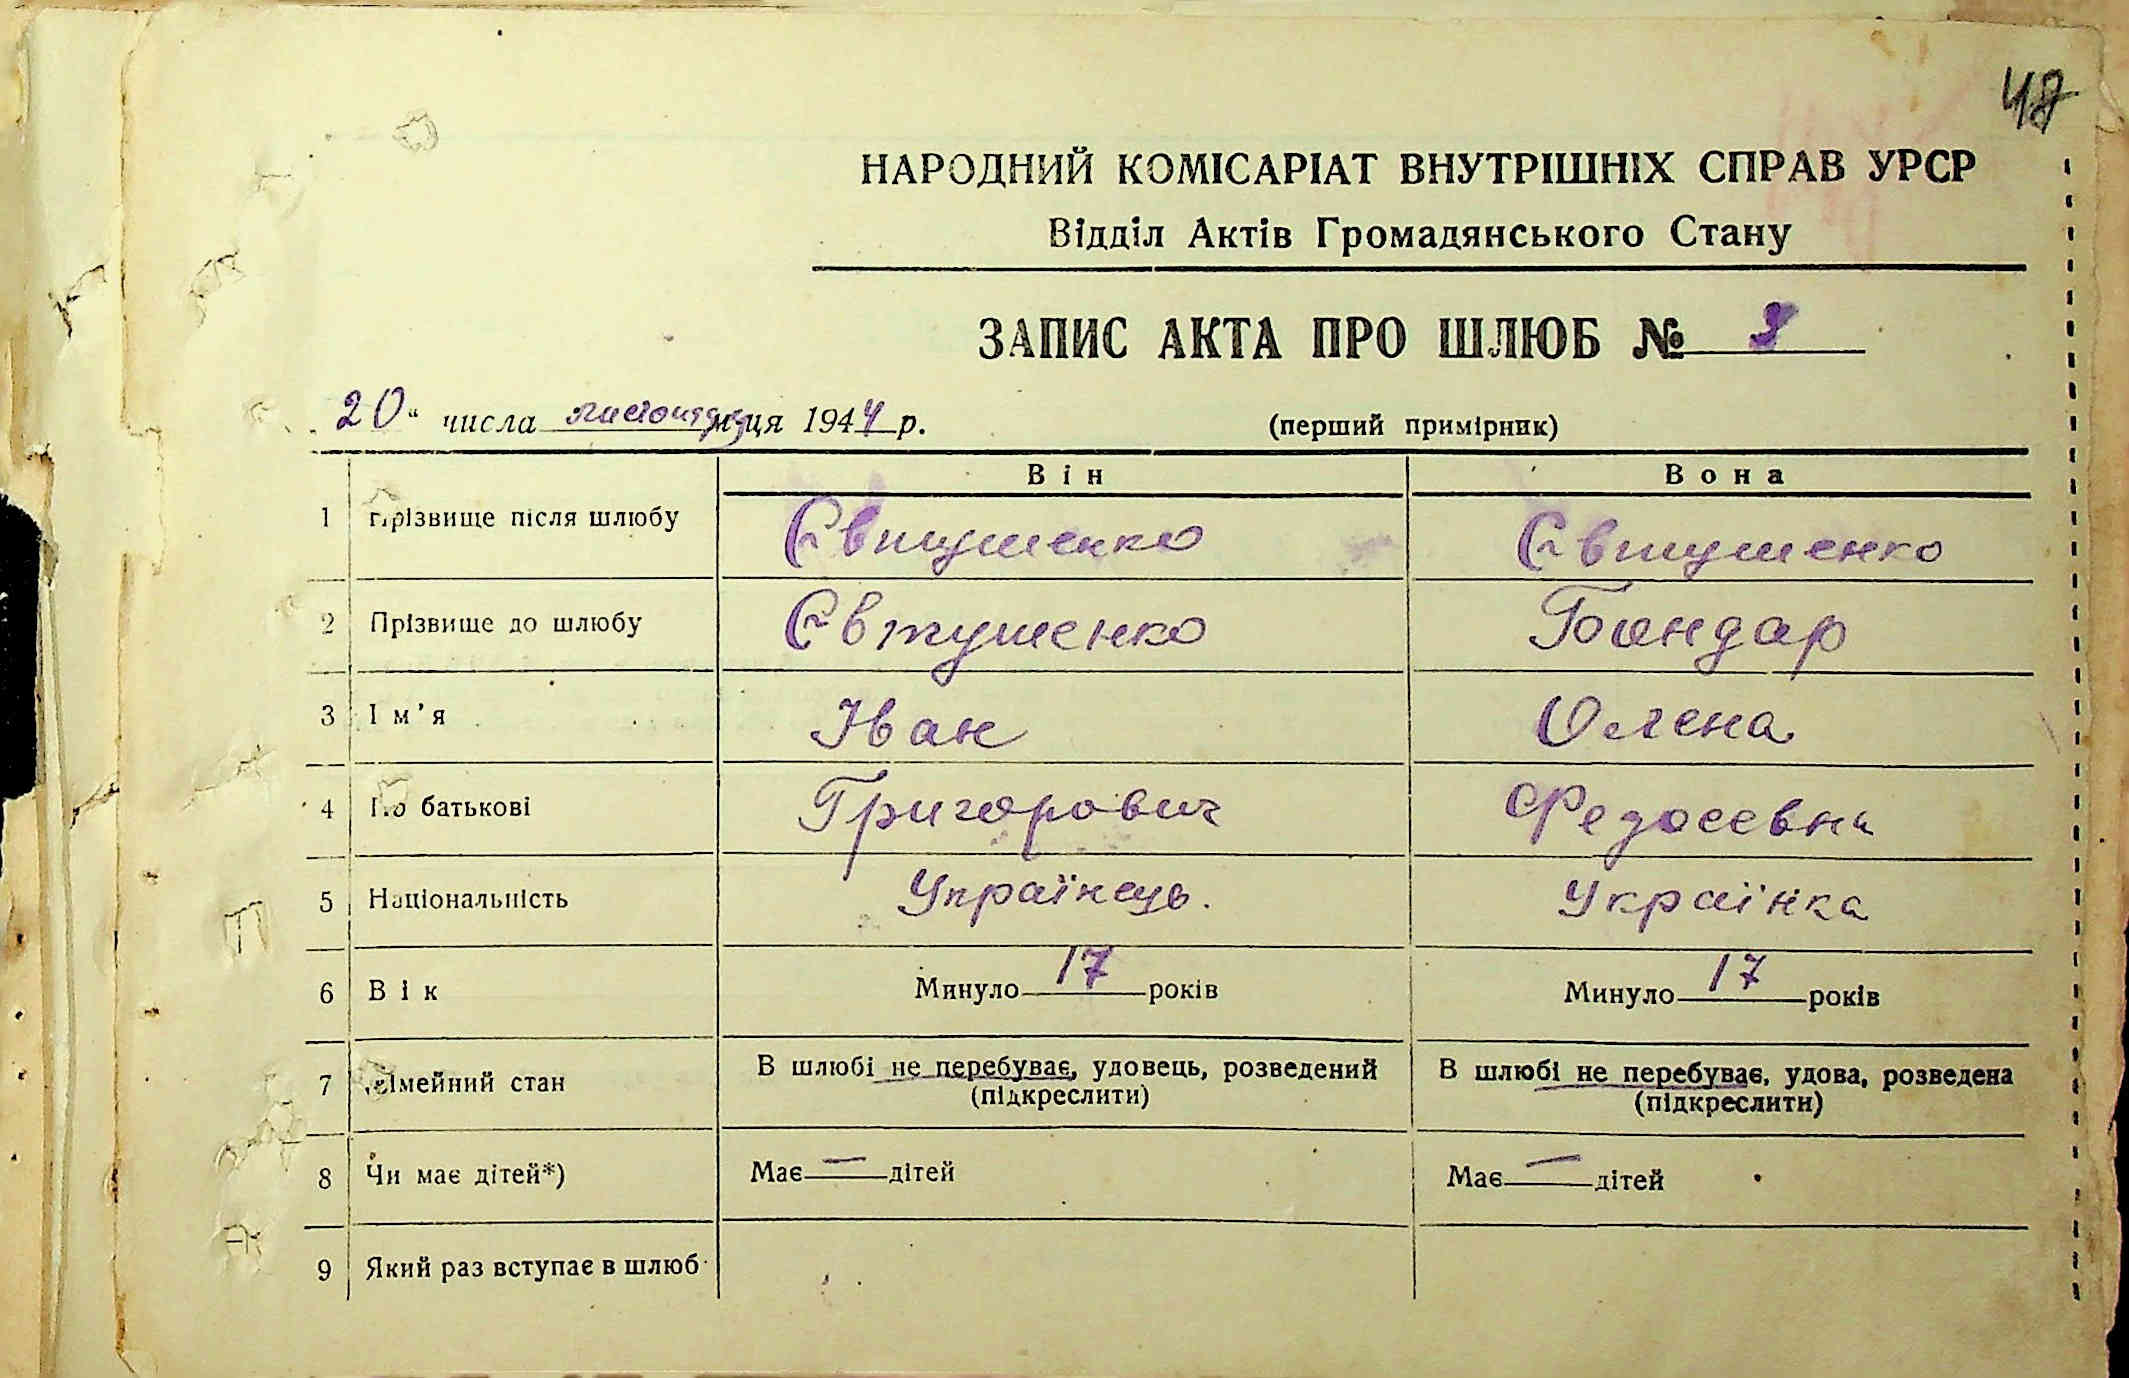 48
НАРОДНИЙ КОМІСАРІАТ ВНУТРІШНІХ СПРАВ УРСР
Відділ Актів Громадянського Стану
ЗАПИС АКТА ПРО ШЛЮБ №
20" числа листопада м-ця 1944 р.
(перший примірник)
Він Вона
1 Прізвище після шлюбу Євтушенко Євтушенко
2 Прізвище до шлюбу Євтушенко Бондар
3 Ім'я Іван Олена
4 По батькові Григорович Федосеевна
5 Національність Українець. Українка
6 Вік Минуло 17 років Минуло 17 років
7 Сімейний стан В шлюбі не перебуває, удовець, розведений (підкреслити) В шлюбі не перебуває, удова, розведена (підкреслити)
8 Чи має дітей*) Має — дітей Має — дітей
9 Який раз вступає в шлюб